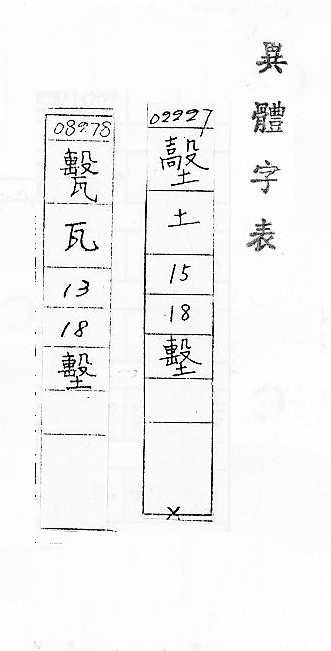 異體字表
02927
土
15
18
墼
×
08278
瓦
13
18
墼